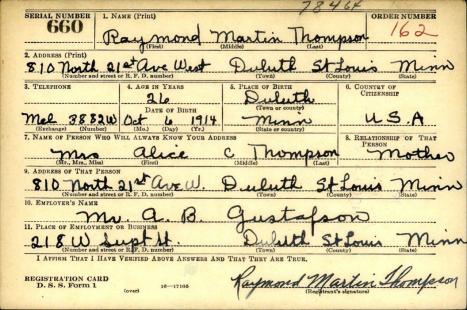 78464
SERIAL NUMBER 1. NAME (Print) ORDER NUMBER
660 Raymond Martin Thompson 162
(First) (Middle) (Last)
2. ADDRESS (Print)
810 North 21st Ave West Duluth St Louis Minn
(Number and street or R. F. D. number) (Town) (County) (State)
3. TELEPHONE 4. AGE IN YEARS 5. PLACE OF BIRTH 6. COUNTRY OF CITIZENSHIP
26 Duluth
DATE OF BIRTH (Town or county)
Mel 3882W Oct 6 1914 Minn U.S.A
(Exchange) (Number) (Mo.) (Day) (Yr.) (State or country)
7. NAME OF PERSON WHO WILL ALWAYS KNOW YOUR ADDRESS 8. RELATIONSHIP OF THAT PERSON
Mrs Alice C Thompson Mother
(Mr., Mrs., Miss) (First) (Middle) (Last)
9. ADDRESS OF THAT PERSON
810 North 21st Ave W. Duluth St Louis Minn
(Number and street or R. F. D. number) (Town) (County) (State)
10. EMPLOYER'S NAME
Mr. A. B. Gustafson
11. PLACE OF EMPLOYMENT OR BUSINESS
218 W Supt St. Duluth St Louis Minn
(Number and street or R. F. D. number) (Town) (County) (State)
I AFFIRM THAT I HAVE VERIFIED ABOVE ANSWERS AND THAT THEY ARE TRUE.
REGISTRATION CARD
D. S. S. Form 1 (over) 16—17105 Raymond Martin Thompson
(Registrant's signature)